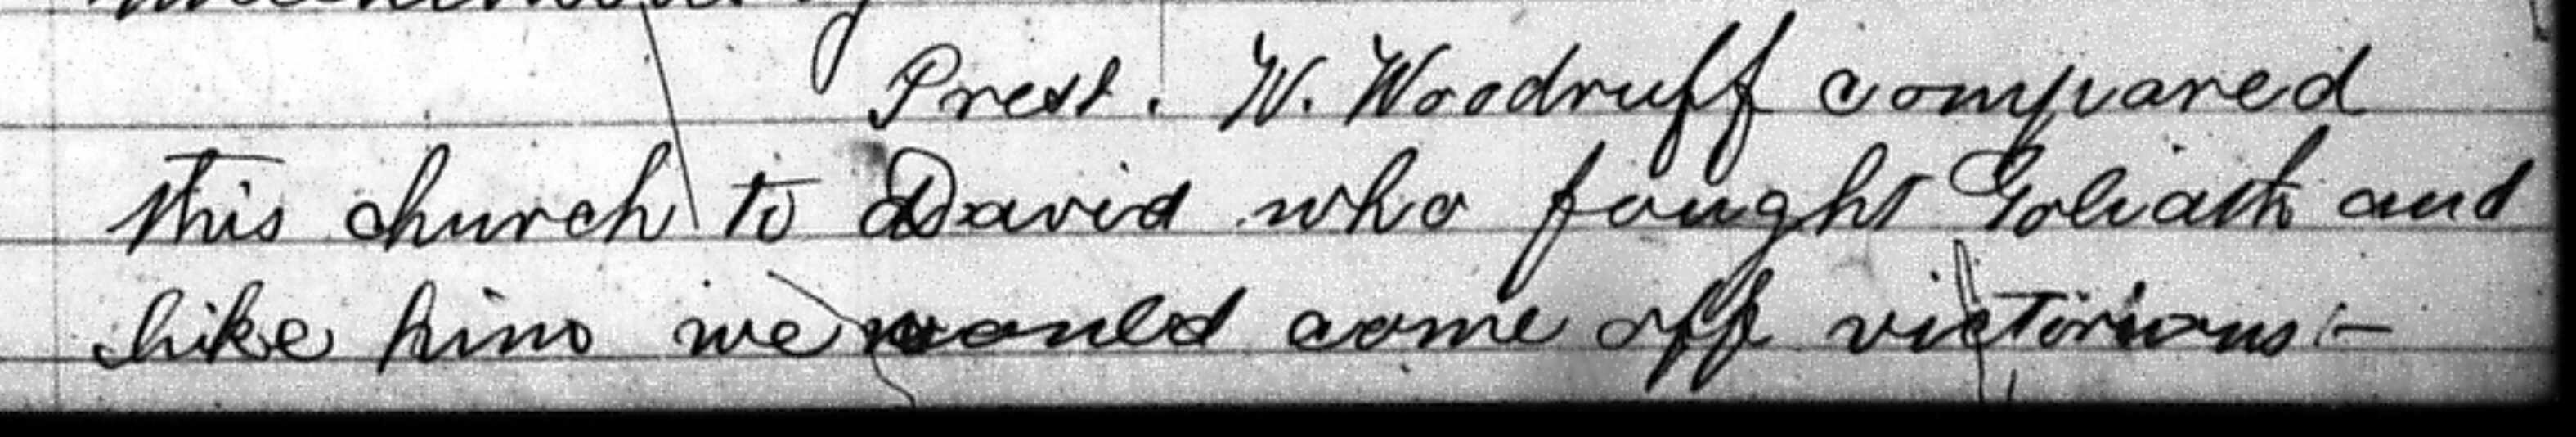 Prest. W. Woodruff compared
this church to David who fought Goliath and
like him we would come off victorious:-